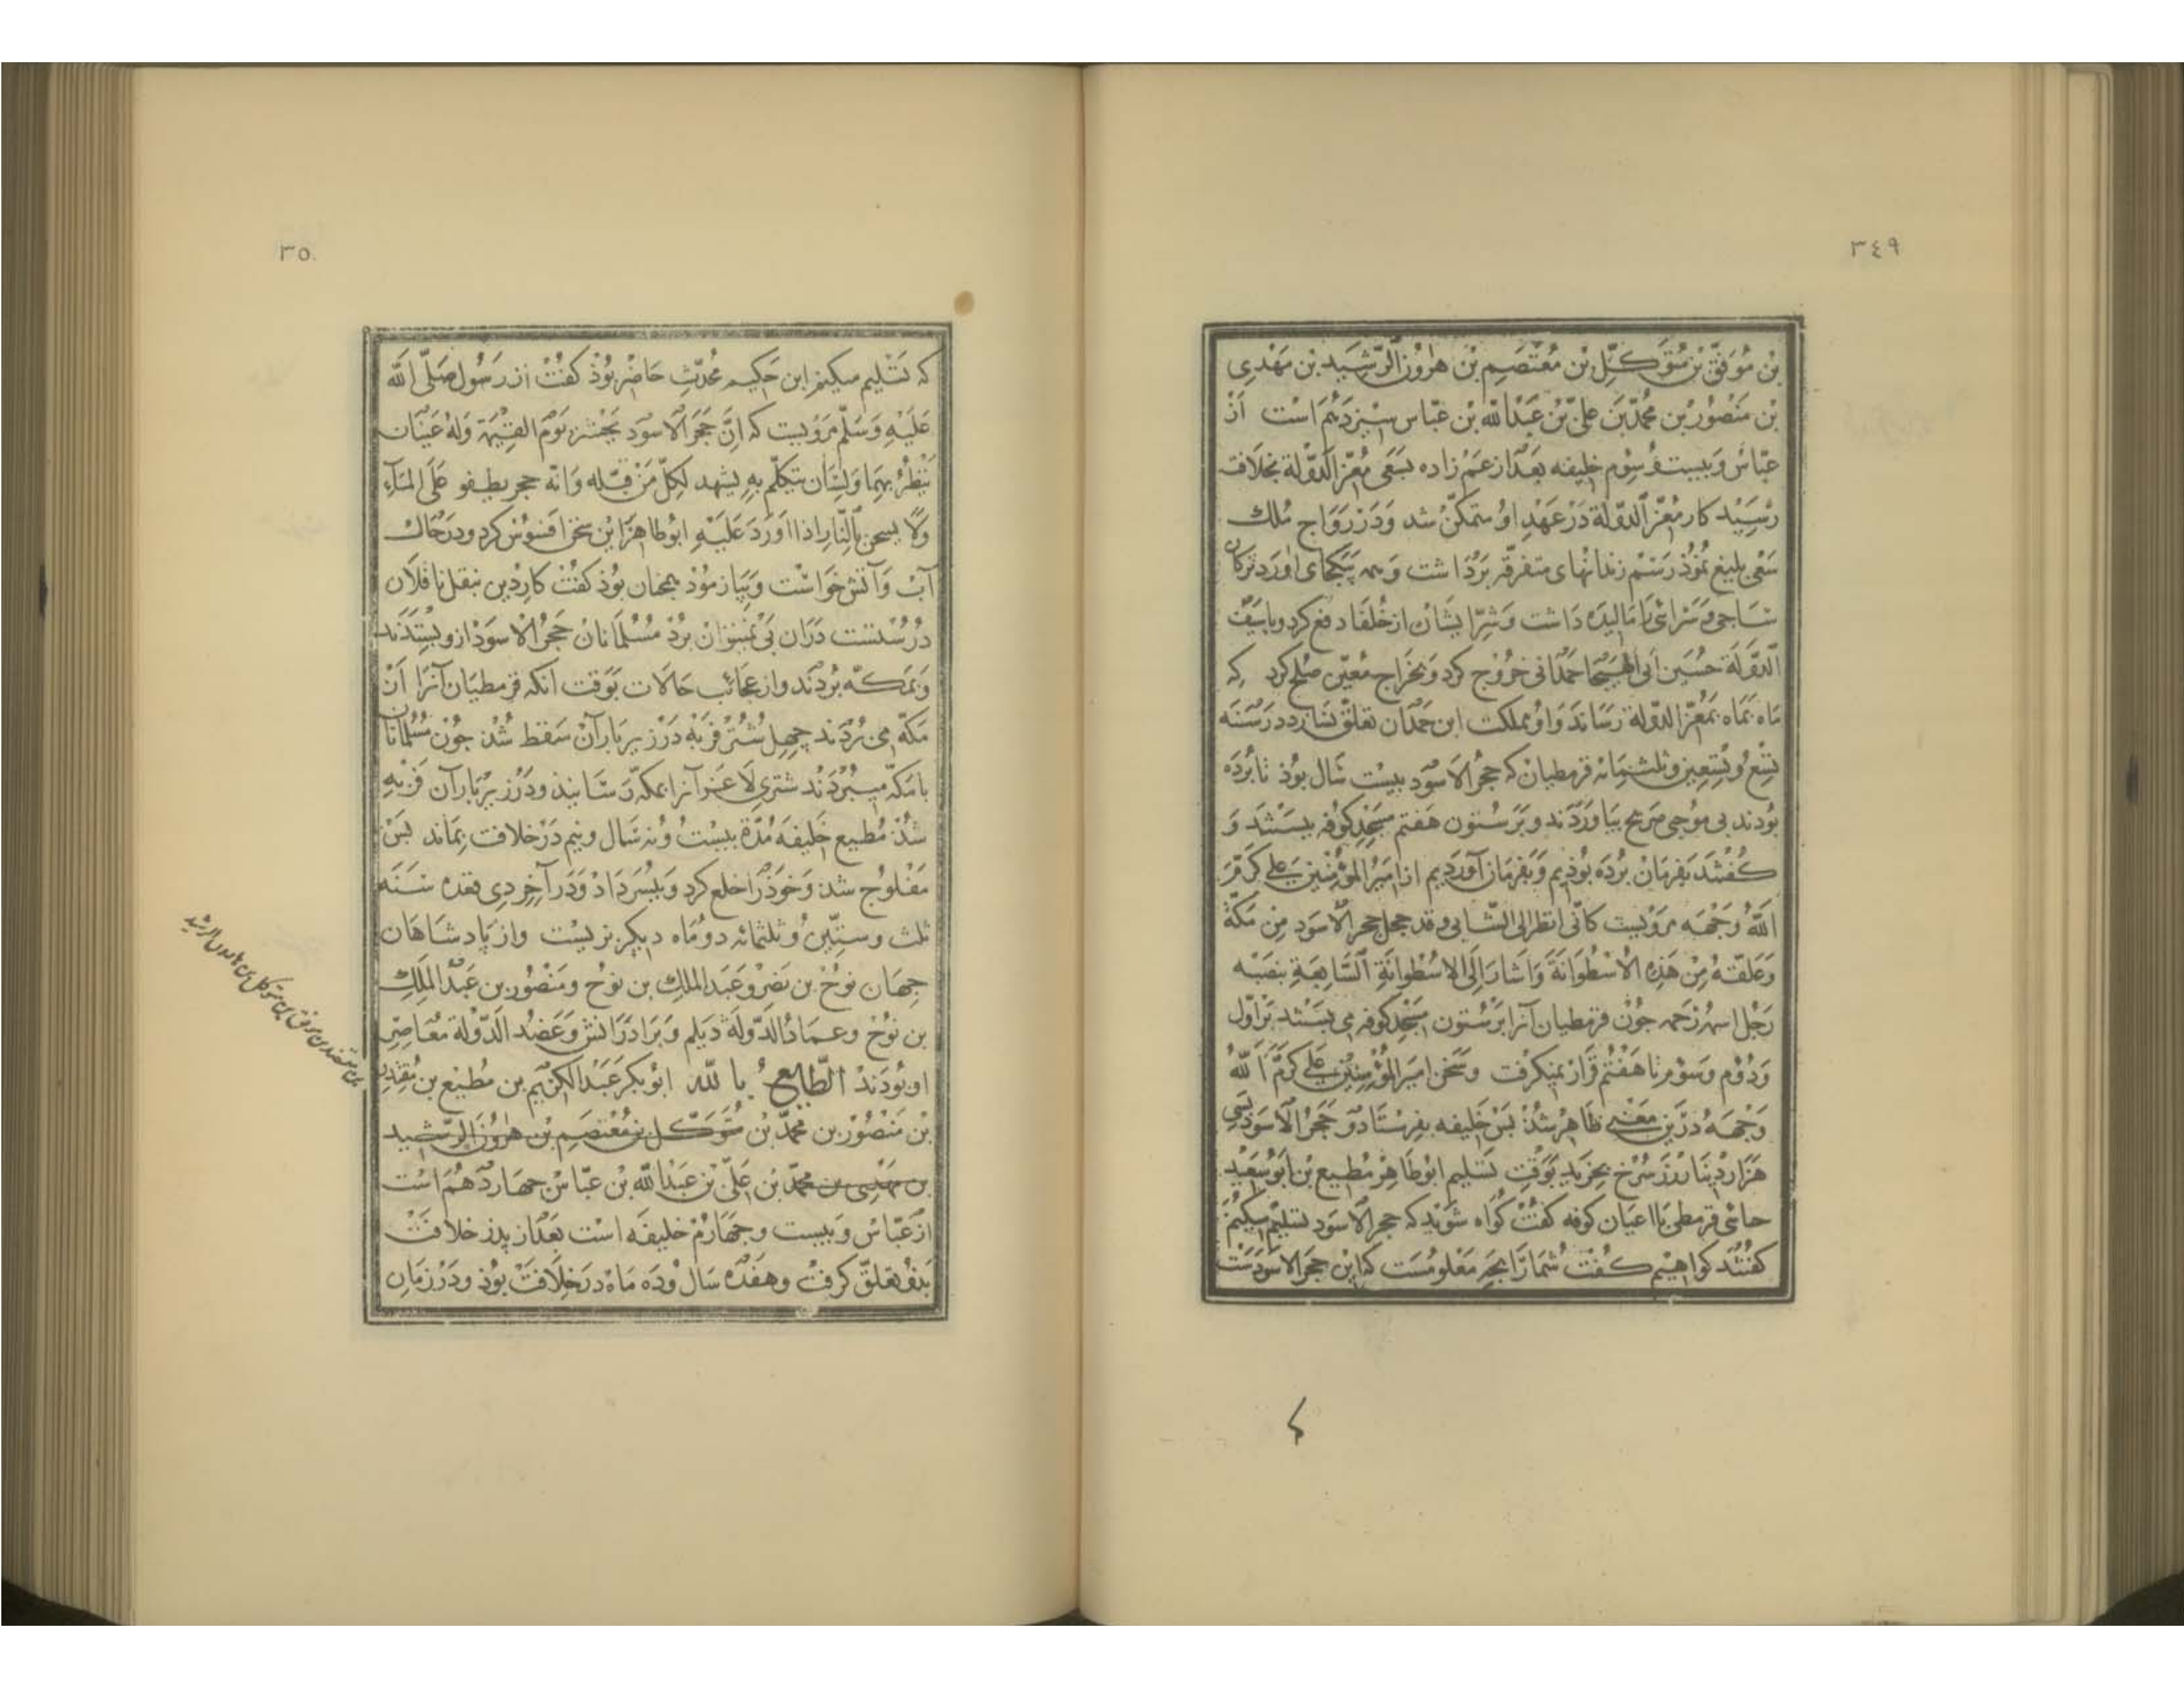 ٣٤٩
بن مُوَفّق بن مُتَوَكّل بن مُعْتَصِم بن هٰروُن الرّشَيد بن مَهْدِى
بن مَنْصُوُر بن مُحمّد بن علىّ بن عَبْدالله بن عبّاس سيزدَهُم است اَز
عبّاس وَبيست وَسِوُم خليفه بعَد از عمّ زاده بسَعى مُعزّ الدّولة بخلافت
رسَيد كار مُعزّ الدولة دَر عَهْدِ او متمكّن شد وَدَر رَوَاج مُلك
سَعْى بليغ نمُوذ رَسْم زندانهاى متفرّقه بَرْدَاشت وَهمه بيَكجاى اورَد تركان
ساجى وَسَرائى را مَاليده دَاشت وَشرّ ايشَان از خُلفا دفع كرد وبا سَيف
الدّوَلة حُسَين ابى الهَيجَا حَمْدَانى خروُج كرد وَبخَراج معُيّن صُلح كرد كه
مَاه بمَاه بمُعزّ الدّولة رسَاند وَاو بمملكت ابن حَمْدَان تعلّق نسَازد در سَنه
تِسْع وُ ثلثمِائه قرمطيان كه حجرُ الاَسوَد بيست سَال بوُذ تا بُرده
بوُدند بى موُجبى صَريح بيَاورَدند وَبَر ستون هَفتم مَسجدِ كوُفه ببستند وَ
كُفتند بفرمَان بُرده بوُذيم وَبفرمَان آورَديم از امَيرُ المؤمنين عَلى كرّمَ
الله وَجْهَه مَروْيست كانّى انظر الى الشّابى وقد حجل حجر الاَسوَد مِن مَكّة
وَعَلقتهُ مِن هَذِهِ الاُسْطوَانَة وَاشَارَ اِلى الاسُطوانَةِ السّابِعَةِ بنصبه
رَجُل اسمه رحمه جوُن قرمطيان آنرا بَر ستون مَسْجدِ كوفه مى بستند بَر اوّل
وَدُوُم وسوُم تا هَفتُم قرَار نميكرفت وسَخن امَير المؤمِنين عَلى كرّمَ الله
وَجهَه دَرين مَعْنى ظاهرْ شذ بَس خَليفه بفرستاد وَ حَجَرُ الاَسوَد بسَى
هَزار دينَار زَر سُرخ بخريد بوَقت تسَليم ابوُطَاهِر مُطيع بن ابوُ سَعيْد
حائى قرمطى با اعيان كوفه كفت كوُاه شوَيد كه حجر الاَسوَد تسليم ميكنم
كفتند كواهيم كُفت شُمارا بچه مَعْلومُست كه اين حجر الاسوَدست
٣٥٠
كه تسَليم ميكنم ابن حَكيم مُحدّث حَاضر بوُذ كفت از رَسُول صَلّى الله
عَليْهِ وَسَلّم مَرويست كه اِنّ حَجَر الاَسوَد يحَشر يَومَ القيمَة وَلهُ عَيْنَان
يَنْظرُ بهِمَا وَلِسَان يَتكلّم بهِ يشهد لكلّ مَنْ قبّله وَانّه حجر يطفو عَلى المَآء
وَلَا يسخن بالِنّار اِذا اوَرَدَ عَليْهِ ابوُطاهر از اين سَخن افسوُس كرد ودَر حَال
آب وَآتش خوَاست وَبيَازموُذ همجنان بوُذ كفت كار دين بنقل نافلان
دُرُستست دَران بى نتوَان بُرد مُسْلمَانان حَجرُ الاسوَد ازو بستَدند
وَبمَكّه بُردند واز عجائب حَالات بوَقت آنكه قرمطيَان آنرا اَز
مَكّه مى بُردند چهل شتُر فربه دَر زير بَار آن سَقط شذ جوُن مسُلمانان
با مَكّه ميبُردَند شترى لَاغر آنرا بمكّه رسَانيذ ودَر زير بَار آن فَربه
شذ مُطيع خَليفه مُدّة بيست وُ نه سَال ونيم دَر خلافت بمَاند بسَ
مَفلوُج شذ وَخوَذ را خلع كرد وَبپسَر دَاذ وَدَر آخر ذى قعده سَنه
ثلث وستّين وُ ثلثمائه دو مَاه ديكر بزيست واز پادشاهَان
جهَان نوُح بن نصَر وعَبد الملك بن نوُح ومَنصوُر بن عَبْد المَلِك
بن نوُح وعمَادُ الدّولة دَيلم وَبرَادرَانش وَعَضُد الدّوْلة معُاصِر
او بوُدند الطّايع بالله ابوُ بكر عَبْد الكريم بن مُطيع بن مُقتَدِر
بن مَنْصُوُر بن محمّد بن مُتَوَكّل بن مُعْتَصِم بن هٰروُن الرّشيد
بن مَهْدِى بن محمّد بن عَلىّ بن عَبْدالله بن عبّاس چهَاردَهُم است
از عَبّاس وَبيست وچهَارُم خليفه است بعَد از پدر خلافت
بَذو تعلّق كرفت وهفده سَال وُده مَاه درَ خِلَافت بوُذ ودَر زمَان
بن معتضد بن موفق بن متوكل بن هارون الرشيد